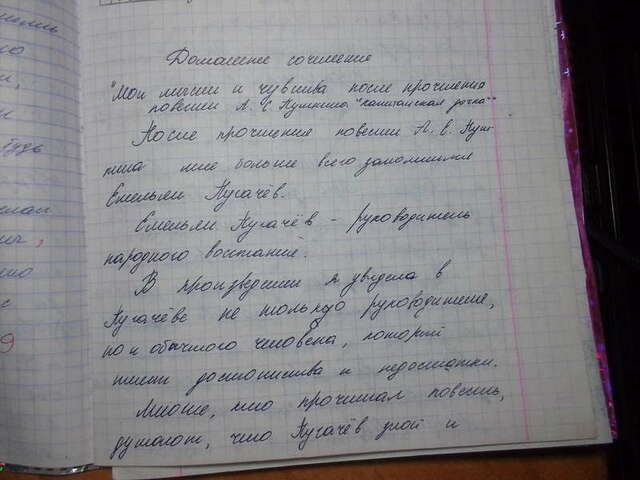 Домашнее сочинение
"Мои мысли и чувства после прочтения
повести А. С Пушкина "Капитанская дочка""
После прочтения повести А. С. Пуш-
кина мне больше всего запомнился
Емельян Пугачёв.
Емельян Пугачёв - руководитель
народного восстания.
В произведении я увидела в
Пугачёве не только руководителя,
но и обычного человека, который
имеет достоинства и недостатки.
Многие, кто прочитал повесть,
думают, что Пугачёв злой и
будь
9